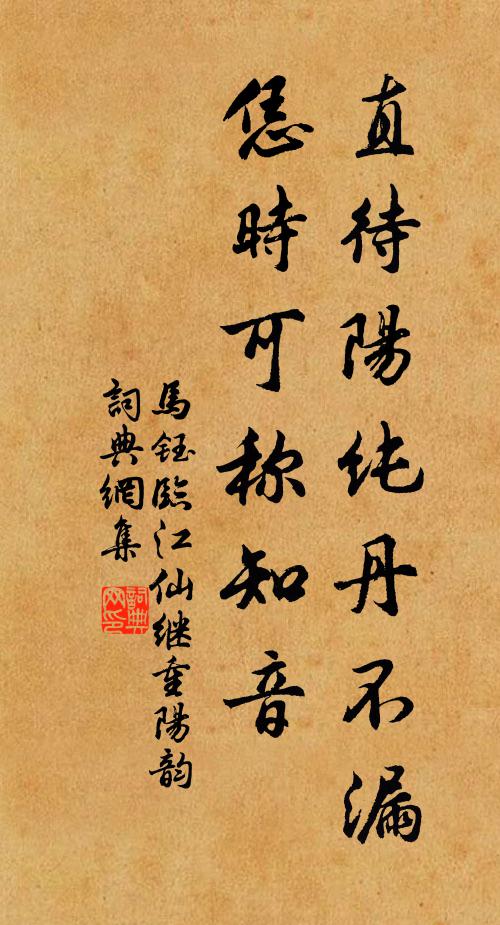 直待陽純丹不漏
恁時可称知音
馬鈺臨江仙继重陽韵
詞典網集
詞典
网印